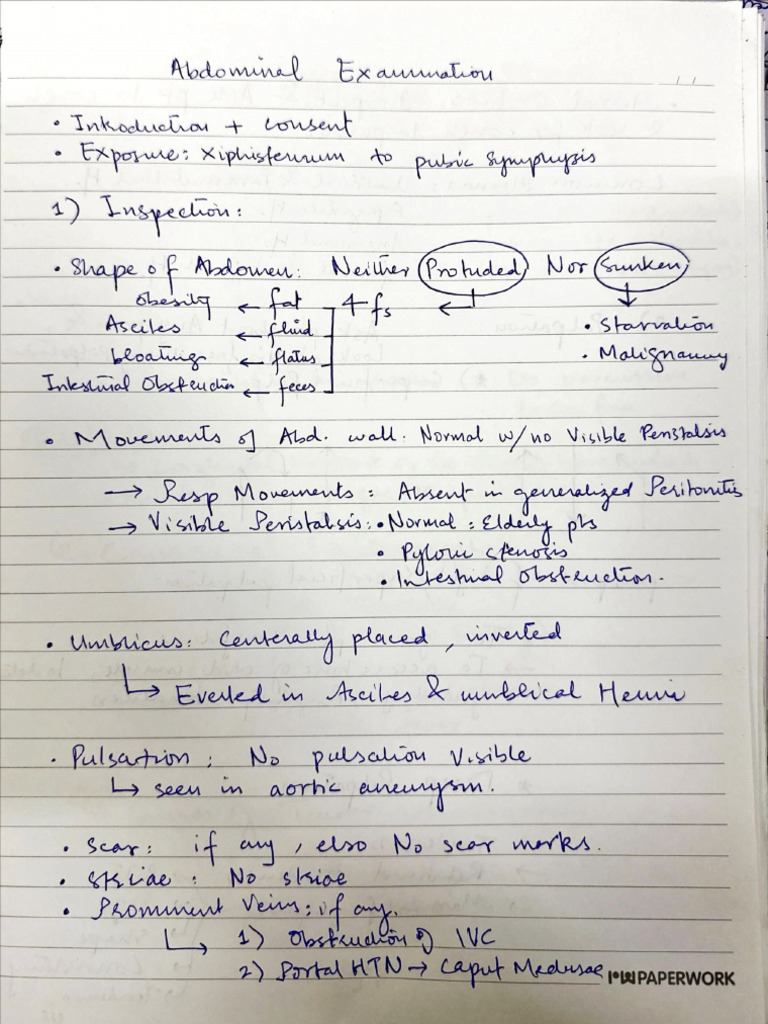 Abdominal Examination
• Introduction + consent
• Exposure: Xiphisternum to pubic symphysis
1) Inspection:
• Shape of Abdomen: Neither Protuded Nor Sunken
Obesity ← fat 4 fs ←
Ascites ← fluid • Starvation
bloating ← flatus • Malignancy
Intestinal Obstruction ← feces
• Movements of Abd. wall. Normal w/no Visible Peristalsis
→ Resp Movements: Absent in generalized Peritonitis
→ Visible Peristalsis: • Normal: Elderly pts
• Pyloric stenosis
• Intestinal Obstruction.
• Umblicus: Centerally placed, inverted
↳ Everted in Ascites & umblical Hernia
• Pulsation: No pulsation visible
↳ seen in aortic aneurysm.
• Scar: if any, else No scar marks.
• Striae: No striae
• Prominent Veins: if any.
↳ 1) Obstruction of IVC
2) Portal HTN → Caput Medusae
PAPERWORK